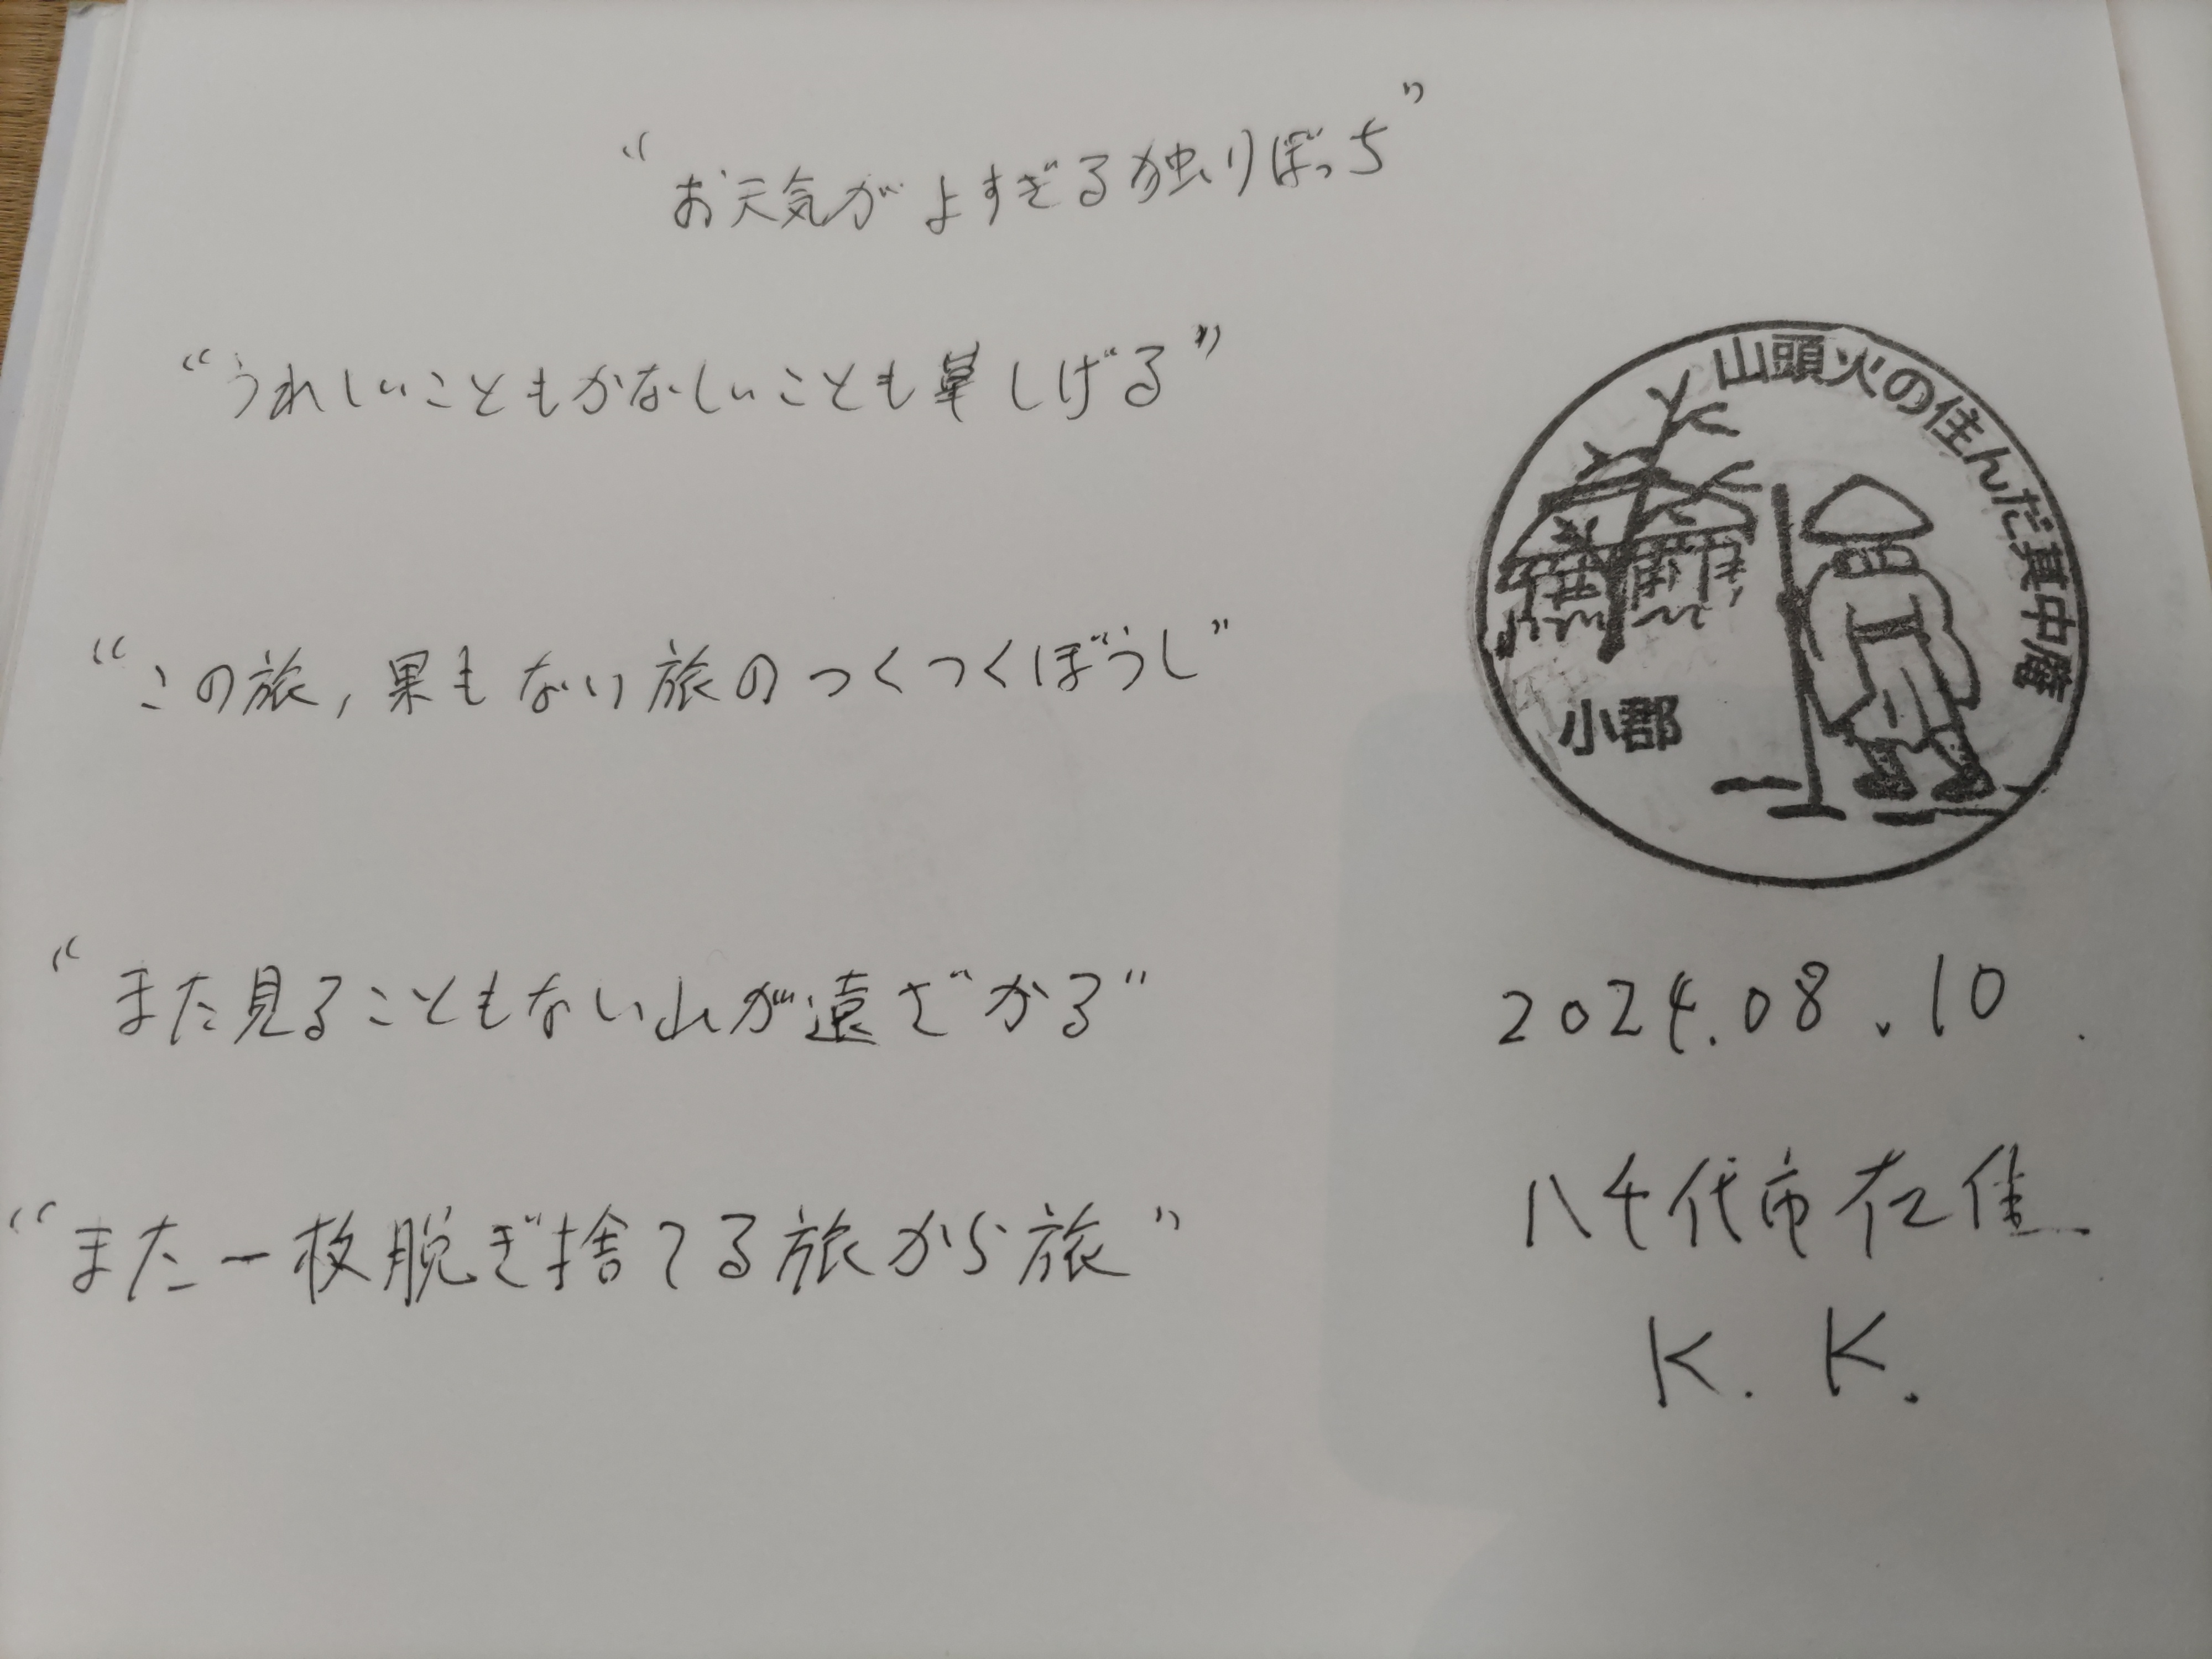 “お天気がよすぎる独りぼっち”
“うれしいこともかなしいことも草しげる”
“この旅,果もない旅のつくつくぼうし”
“また見ることもない山が遠ざかる”
“また一枚脱ぎ捨てる旅から旅”
山頭火の住んだ其中庵
小郡
2024.08.10.
八千代市在住
K.K.